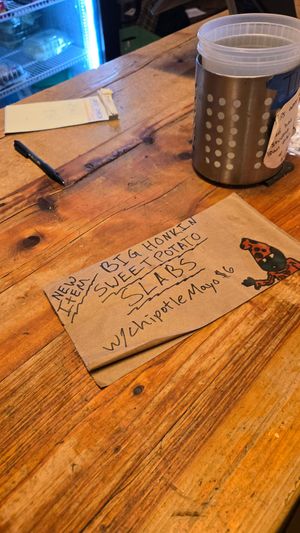 NEW
ITEM
BIG HONKIN
SWEET POTATO
SLABS
w/chipotle Mayo $6